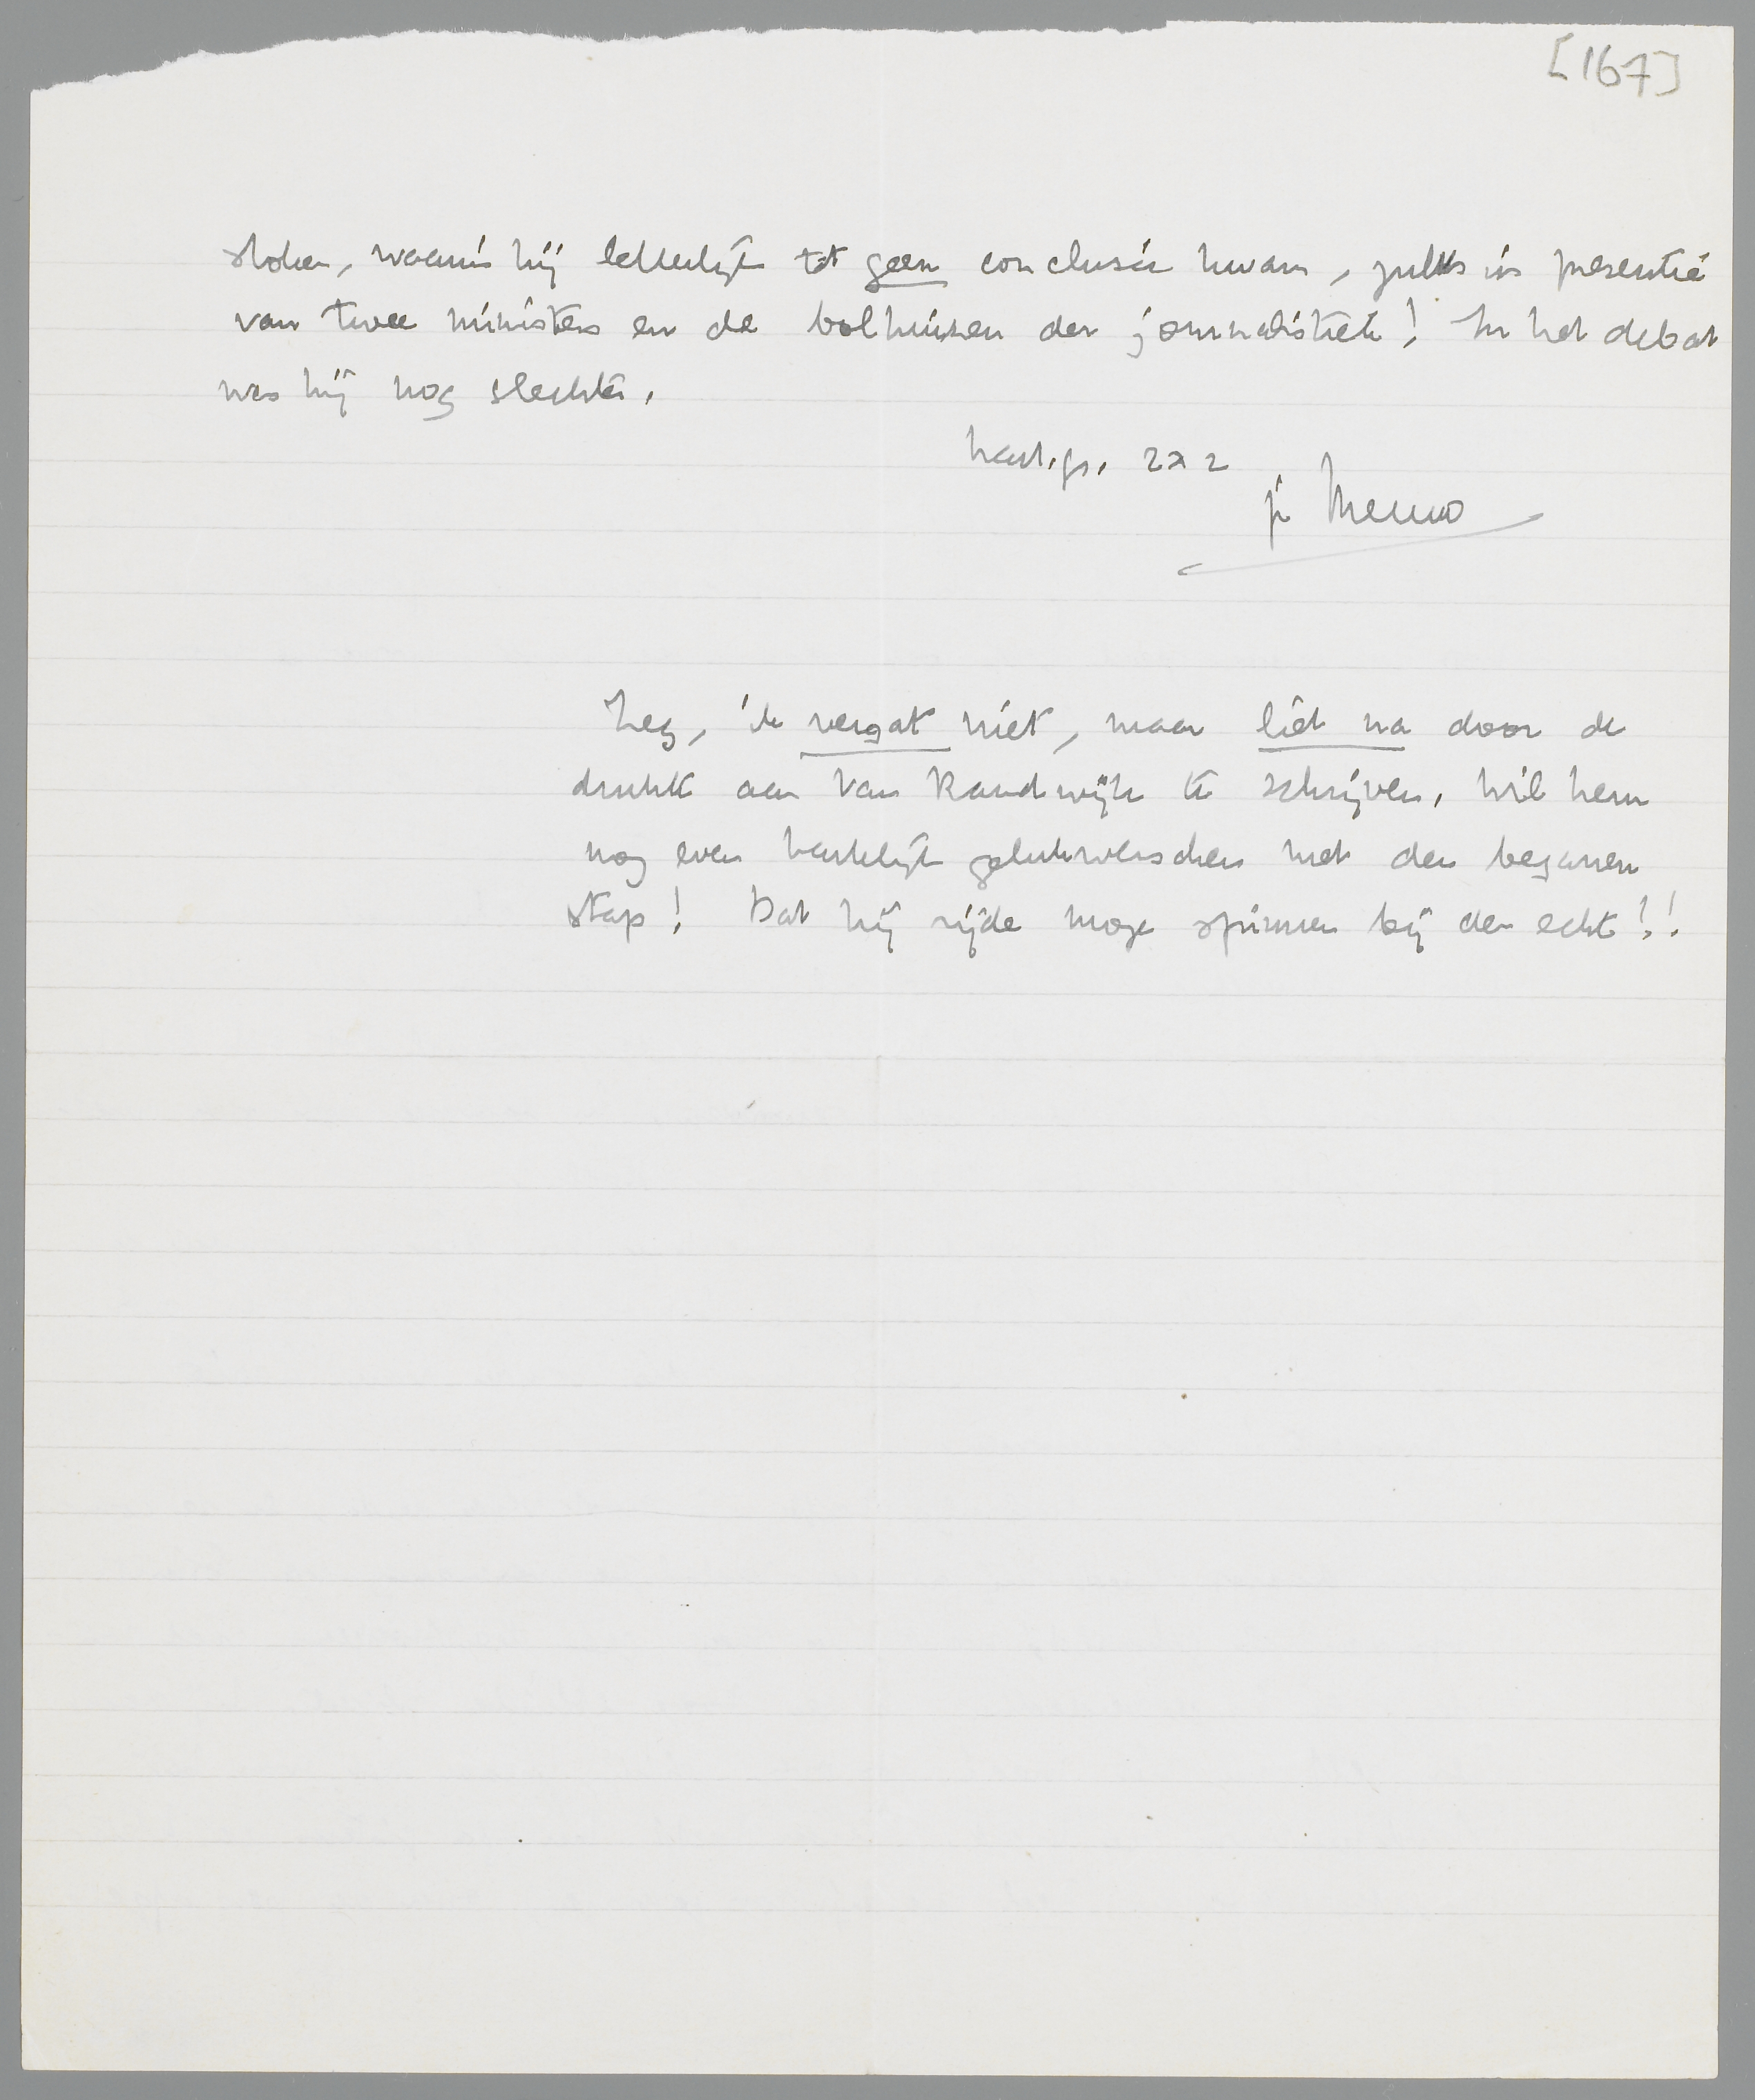 [167]
stoken, waarin hij letterlijk tot geen conclusie kwam, zulks in presentie
van twee ministers en de bolhuizen der journalistiek! In het debat
was hij nog slechter.
hart. gr. 2 x 2
je Menno
Zeg, ik vergat niet, maar liet na door de
drukte aan Van Randwijk te schrijven. Wil hem
nog even hartelijk gelukwenschen met den begaven
stap! Dat hij zijde moge spinnen bij den echt!!